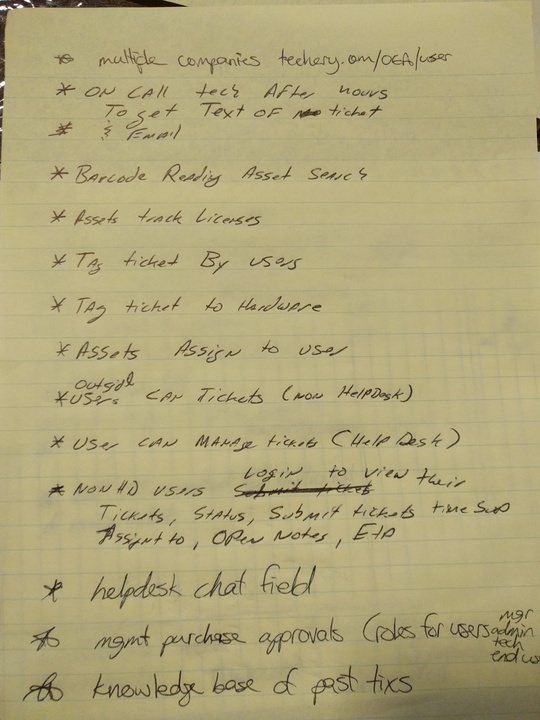 * multiple companies techery.com/OEA/user
* ON CALL tech After hours
To get Text OF ticket
* & Email
* Barcode Reading Asset Search
* Assets track Licenses
* Tag ticket By users
* TAg ticket to Hardware
* Assets Assign to user
outside
* users CAN Tickets (NON HelpDesk)
* User CAN MANAge tickets (Help Desk)
* NON HD users Submit ticket Login to view their
Tickets, Status, Submit tickets time
Assign to, OPen Notes, ETA
* helpdesk chat field
* mgmt purchase approvals (roles for users mgr
admin
tech
end us
* knowledge base of past tixs